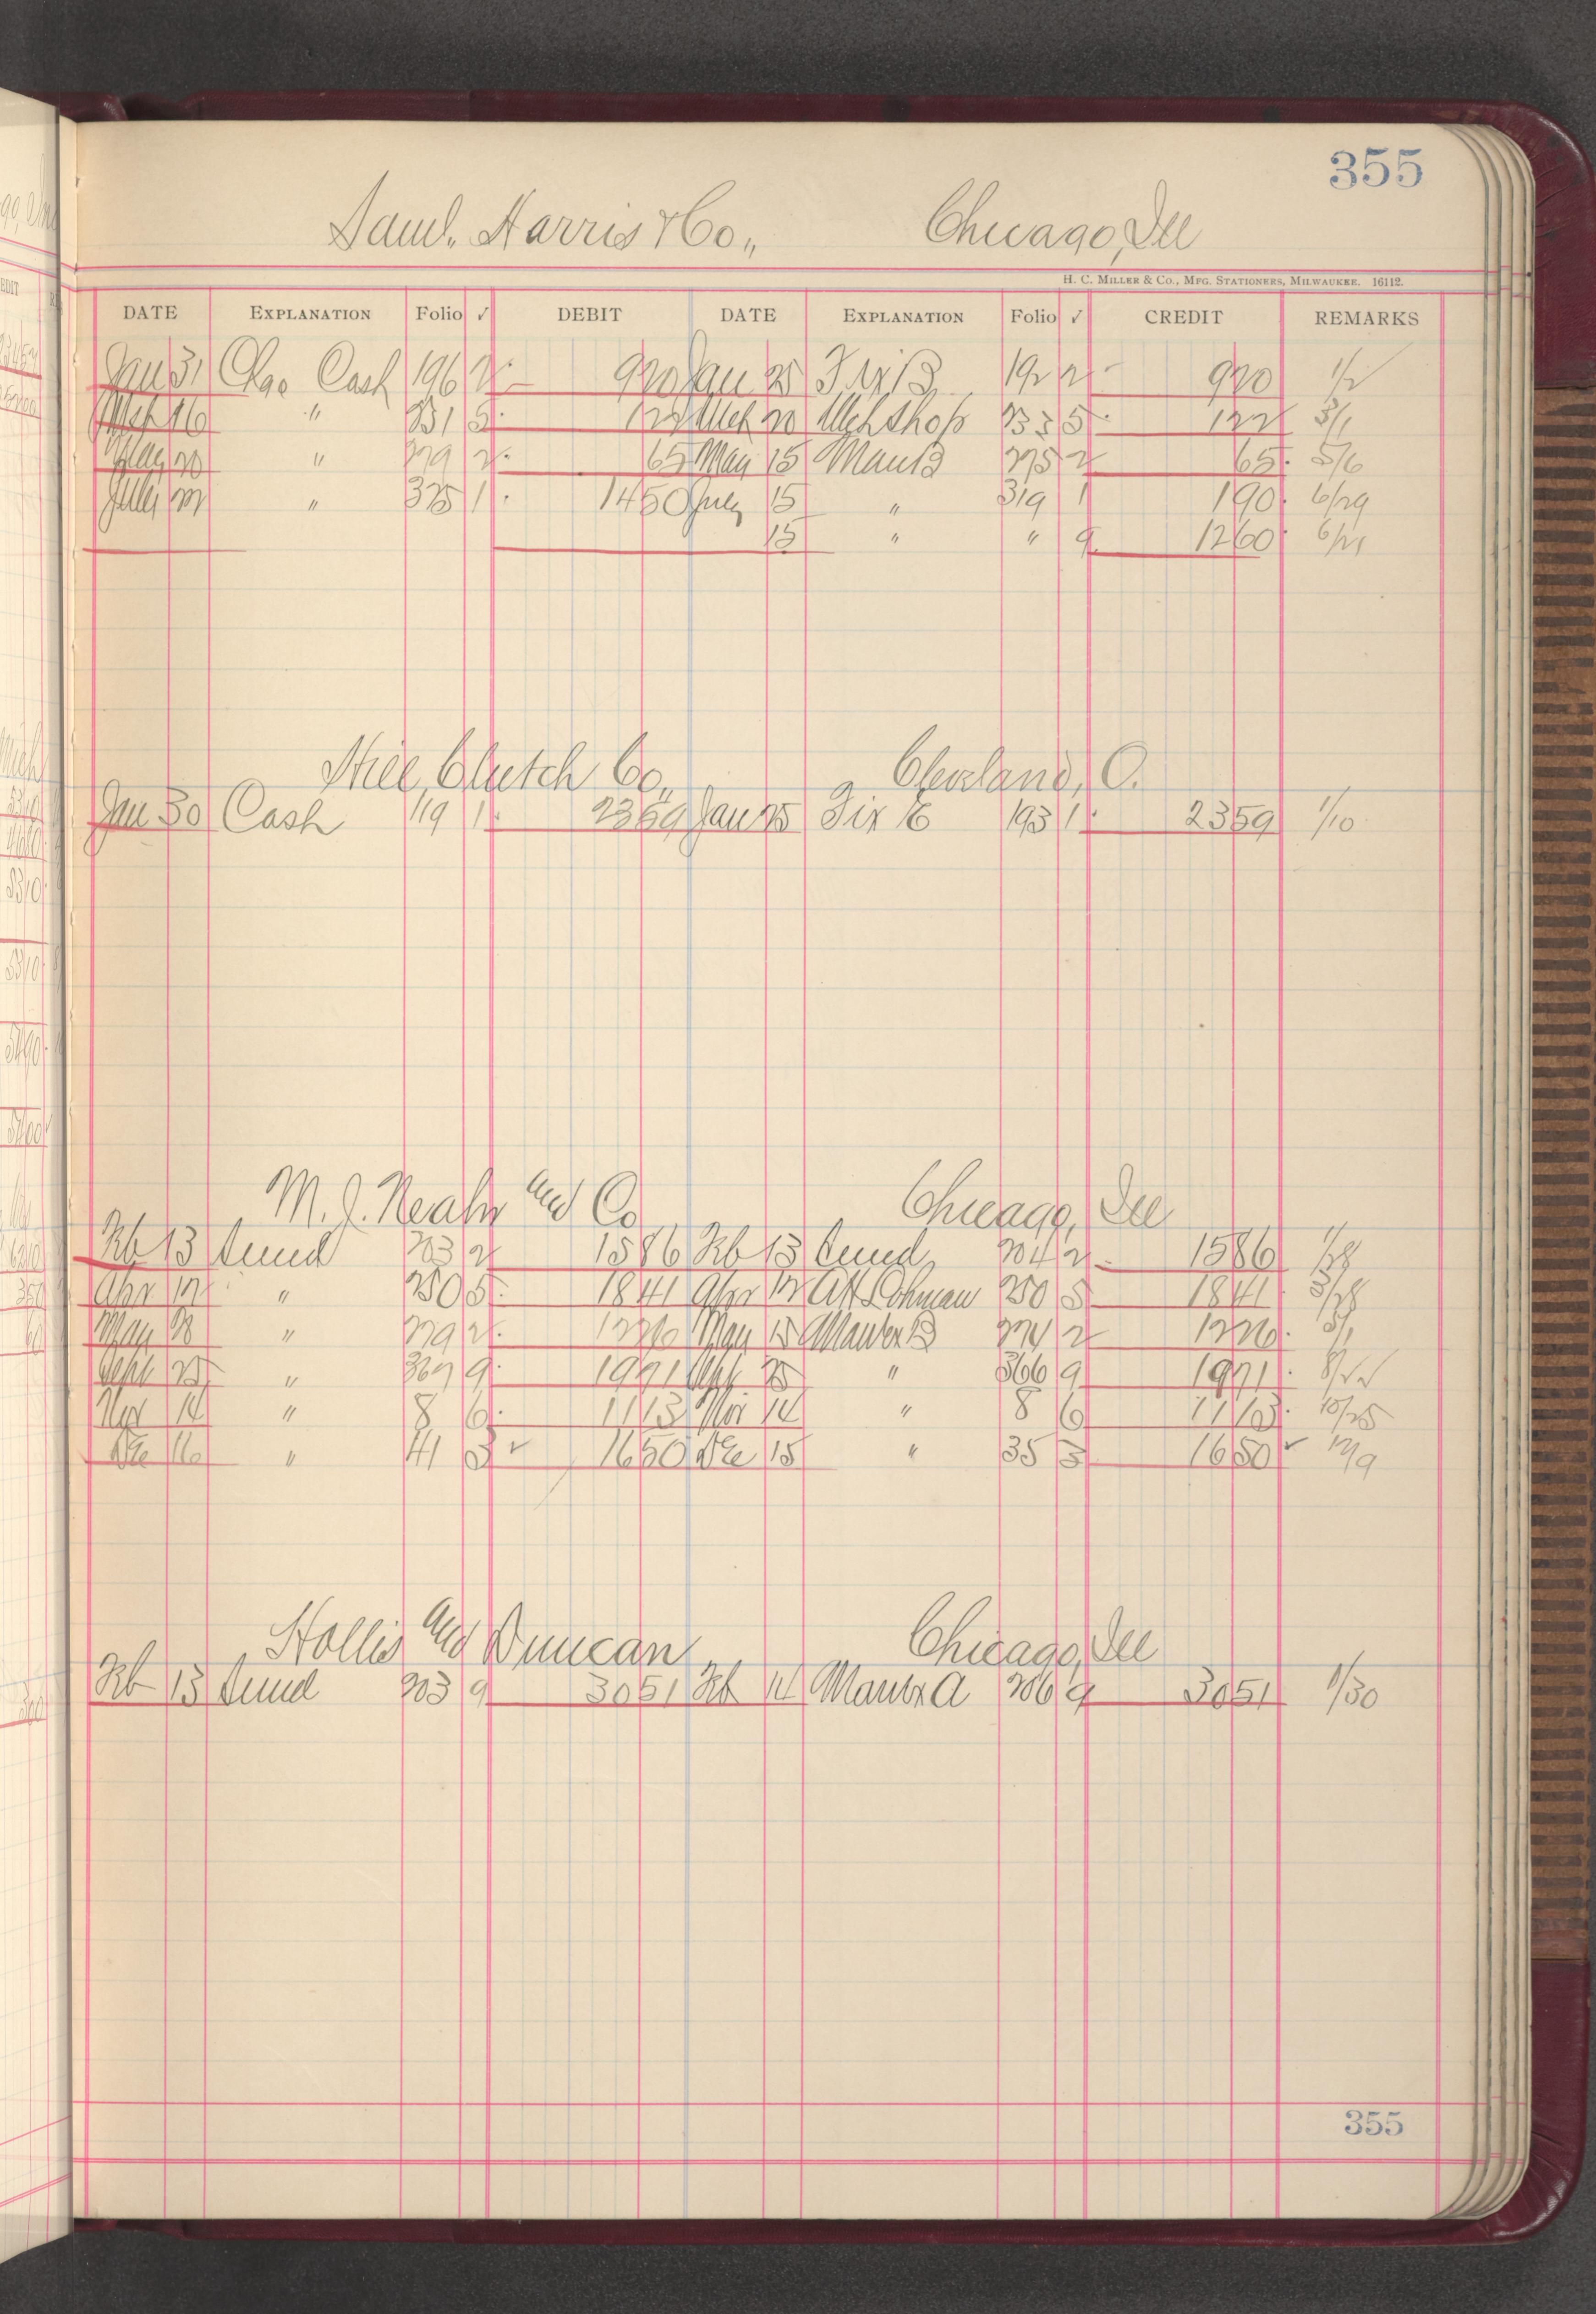 355
Saml. Harris & Co., Chicago, Ill
H. C. MILLER & CO., MFG. STATIONERS, MILWAUKEE. 16112.
DATE EXPLANATION Folio ✓ DEBIT DATE EXPLANATION Folio ✓ CREDIT REMARKS
Jan 31 Chgo Cash 196 2 920 Jan 25 Fix B 192 2 920 1/2
Mch 16 " 231 5 122 Mch 20 Mch Shop 233 5 122 3/1
May 20 " 279 2 65 May 15 Manu B 275 2 65 5/6
July 22 " 325 1 1450 July 15 " 319 1 190 6/29
15 " " 9 1260 6/21
Hill Clutch Co., Cleveland, O.
Jan 30 Cash 119 1 2359 Jan 25 Fix E 193 1 2359 1/10
M. J. Neahr and Co Chicago, Ill
Feb 13 Sund 203 2 1586 Feb 13 Sund 204 2 1586 1/28
Apr 12 " 250 5 1841 Apr 12 Lohman 250 5 1841 3/28
May " 279 2 1226 May 15 Manu B 274 2 1226 5/1
Sept 25 " 367 9 1921 Sept 25 " 366 9 1921 8/22
Nov 14 " 8 6 1113 Nov 14 " 8 6 1113 10/25
Dec 16 " 41 3 ✓ 1650 Dec 15 " 35 3 1650 ✓ 12/9
Hollis and Duncan Chicago, Ill
Feb 13 Sund 203 9 3051 Feb 14 Manu A 206 9 3051 1/30
355